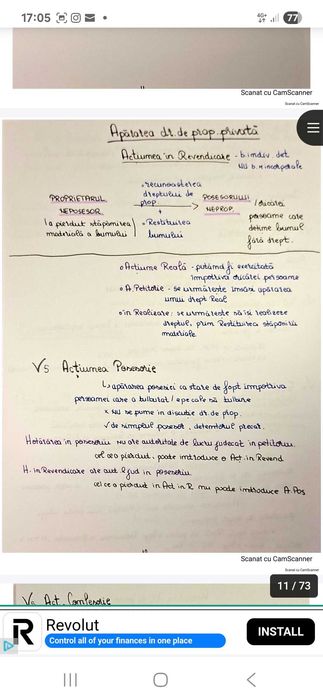 17:05
4G+
77
Scanat cu CamScanner
Scanat cu CamScanner
Apărarea dr. de prop. privată
Acțiunea în Revendicare - b. indiv. det.
NU b. incorporale
PROPRIETARUL
NEPOSESOR
(a pierdut stăpânirea
materială a bunului)
recunoașterea
dreptului de
prop
+
Restituirea
bunului
POSESORULUI
NEPROP.
oricărei
persoane care
detine bunul
fără drept.
Acțiune Reală - putând fi exercitată
împotriva oricărei persoane
A. Petitorie - se urmărește însăși apărarea
unui drept Real
în Realizare: se urmărește să își realizeze
dreptul, prin Restituirea stăpânirii
materiale.
VS Acțiunea Posesorie
apărarea posesiei ca stare de fapt împotriva
persoanei care a tulburat / pe cale să tulbure
x NU se pune în discuție dr. de prop.
✓ de simplul posesor, detentorul precar.
Hotărârea în posesoriu nu are autoritate de lucru judecat în petitoriu.
cel ce a pierdut, poate introduce o Act. în Revend
H. în Revendicare are aut. l. jud în posesoriu
cel ce a pierdut în Act în R nu poate introduce A. Pos
Scanat cu CamScanner
Scanat cu CamScanner
11 / 73
Act. Confesorie
Revolut
Control all of your finances in one place
INSTALL